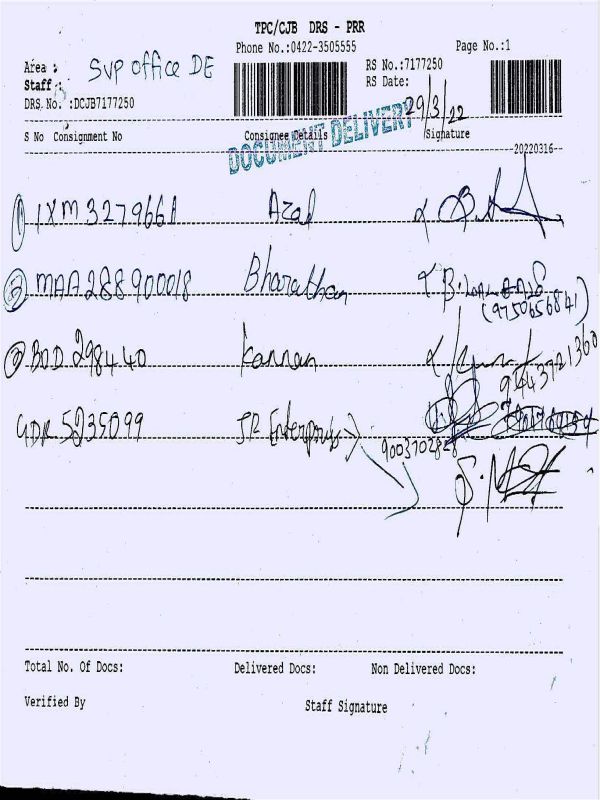 TPC/CJB DRS - PRR
Phone No.:0422-3505555 Page No.:1
Area : SVP office DE RS No.:7177250
Staff : RS Date: 29/3/22
DRS No. :DCJB7177250
S No Consignment No Consignee Details Signature
DOCUMENT DELIVERY
20220316
① IXM 327966A Azad
② MAA 288900018 Bharathan
(9750656841)
③ BOD 298440 Kannan
9443721360
GDR 5235099 JR Enterprises
9003702828
Total No. Of Docs: Delivered Docs: Non Delivered Docs:
Verified By Staff Signature